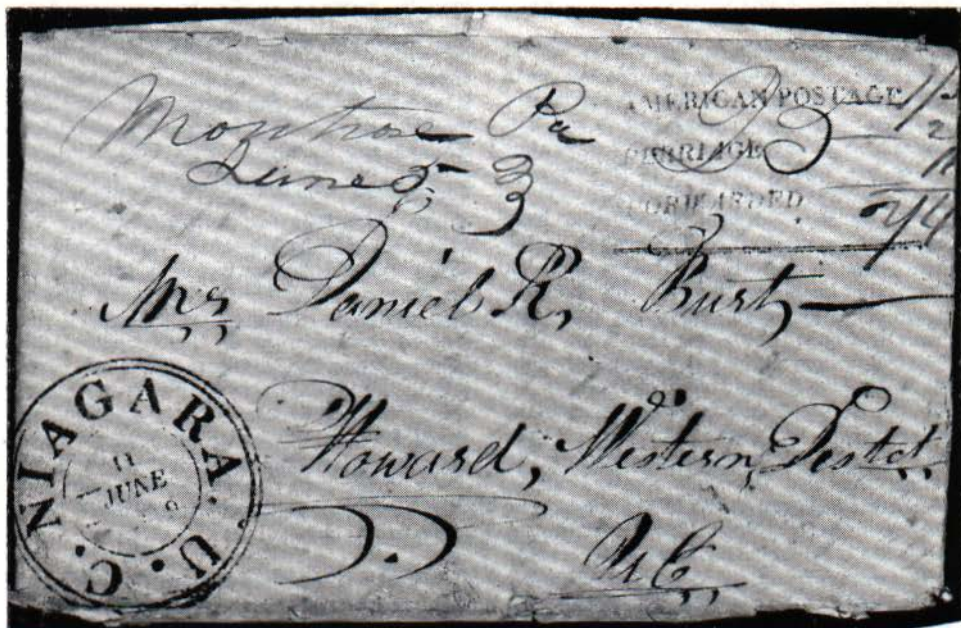 Montrose Pa
June 5 3
AMERICAN POSTAGE
FERRIAGE
FORWARDED
Mr Daniel R, Burt,
Howard, Western, Distct,
U C
NIAGARA. U. C.
11
JUNE